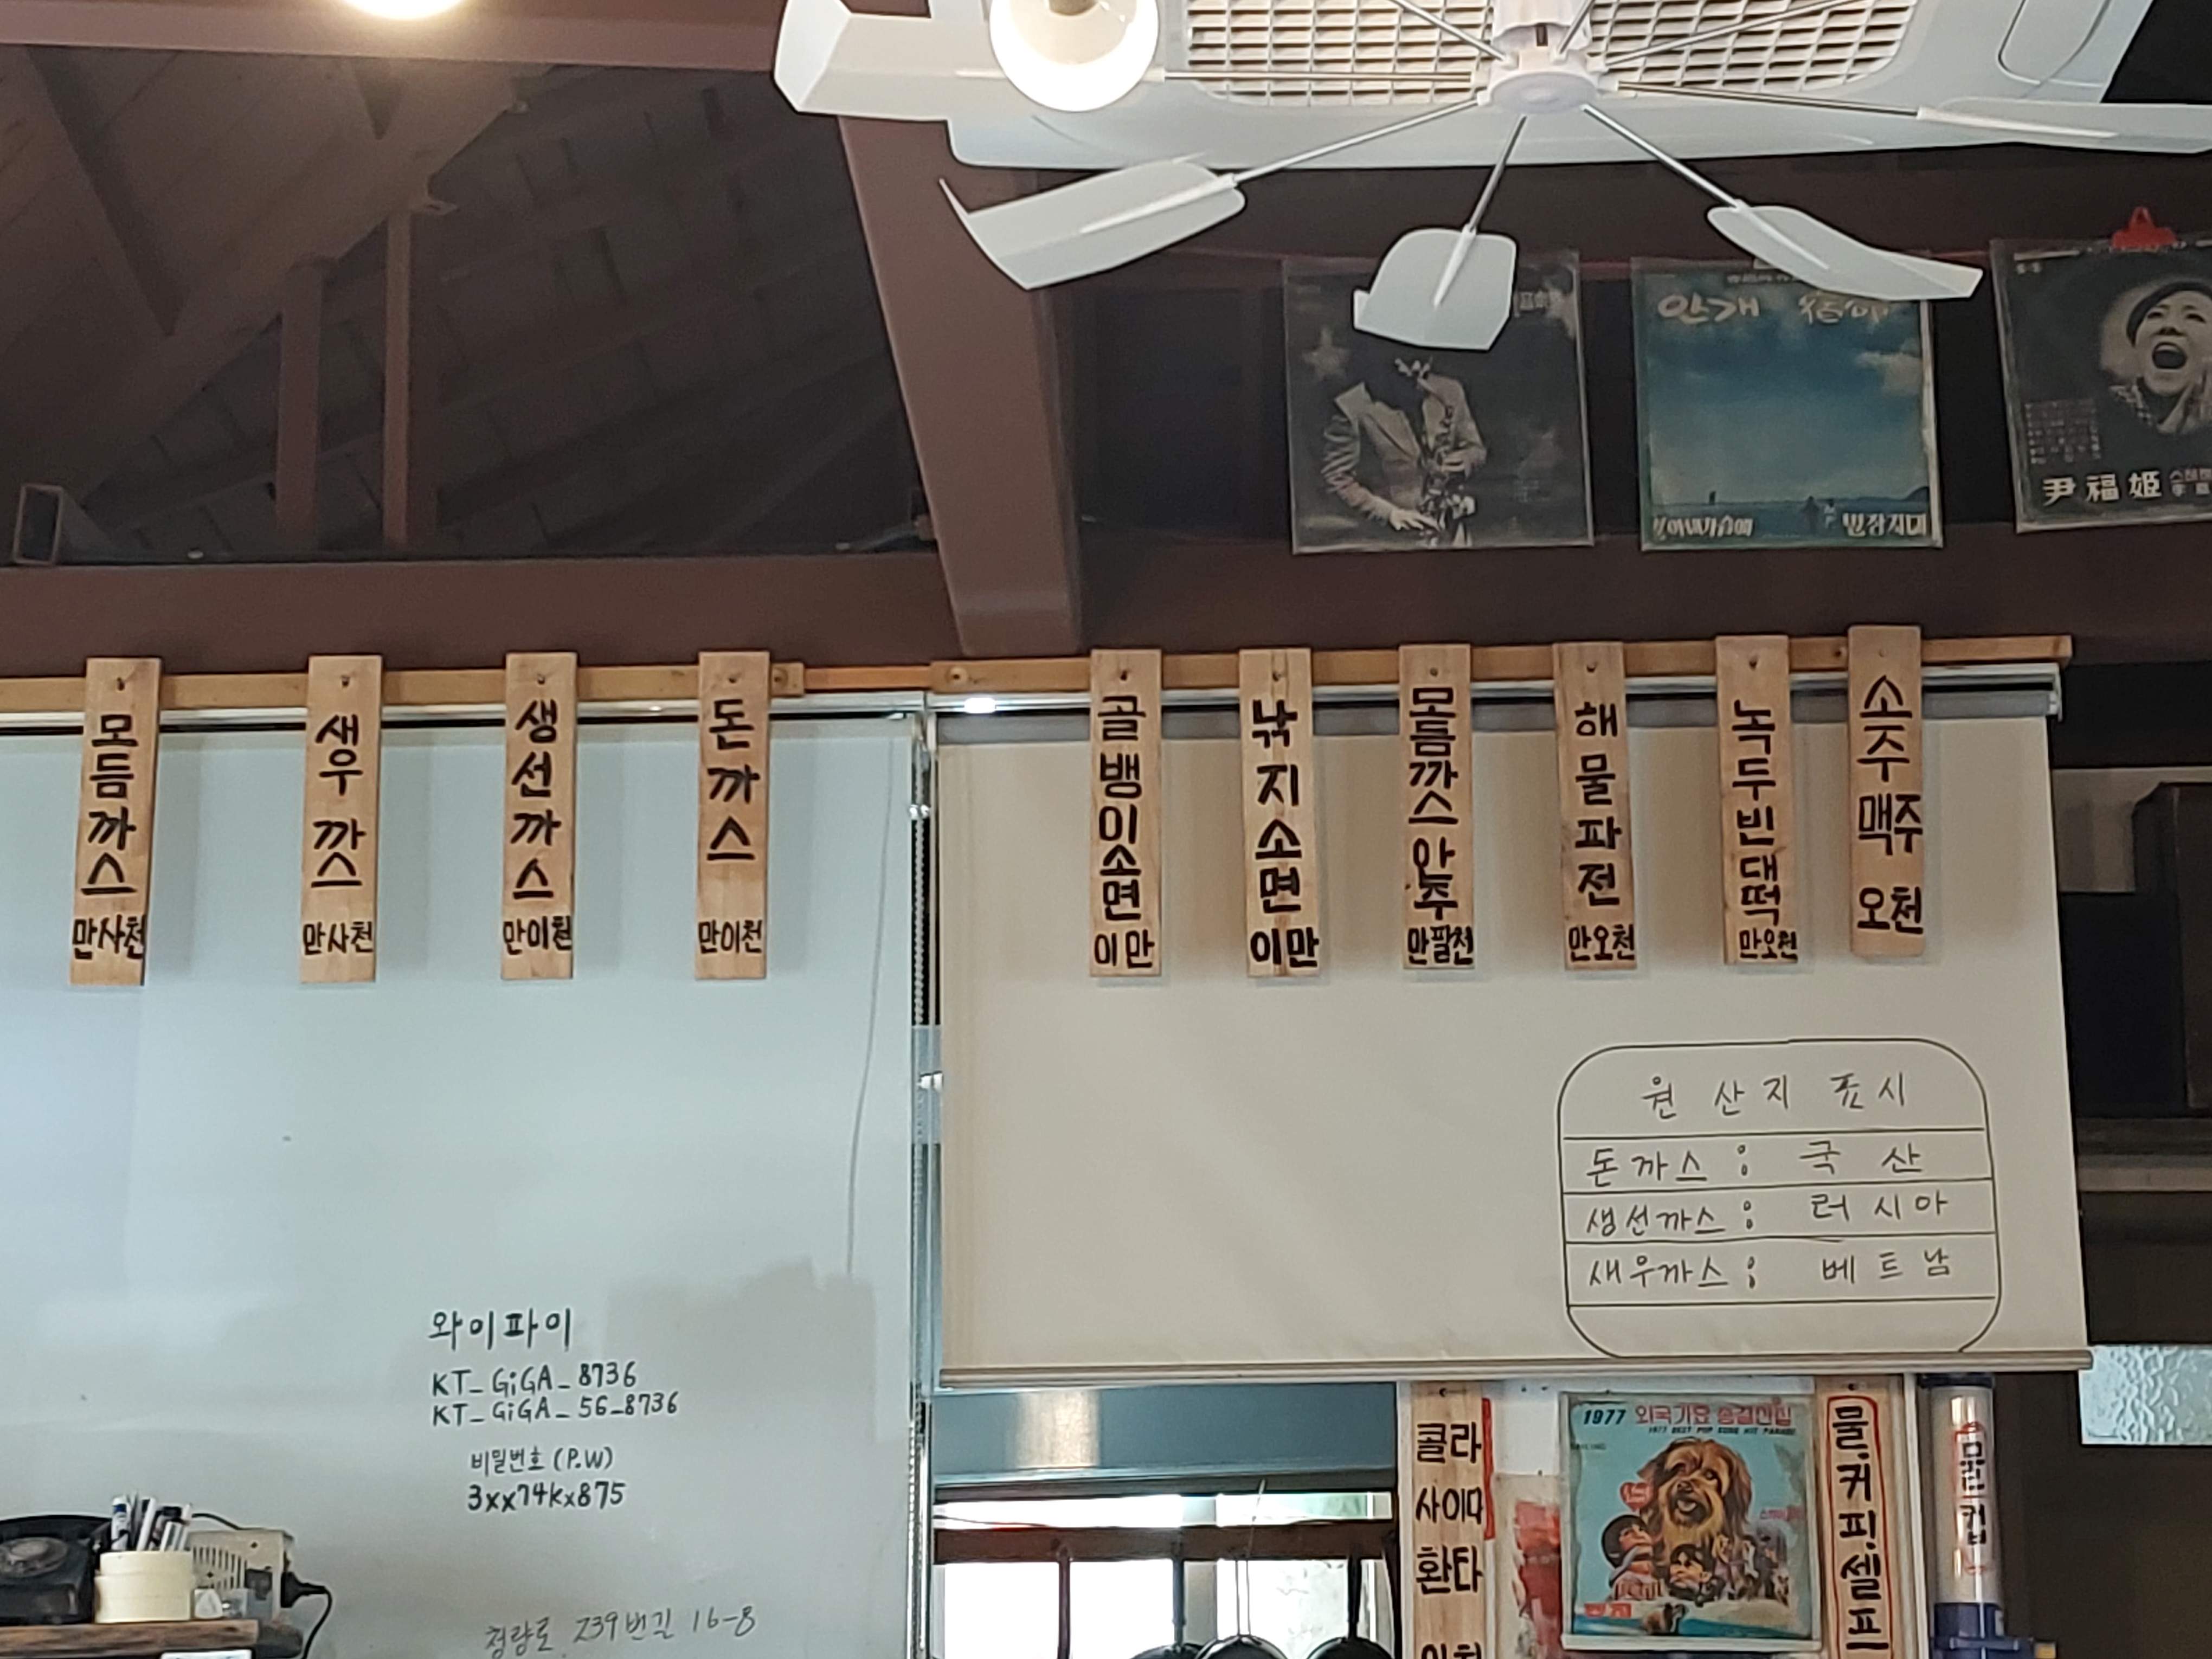 안개
尹福姬
모듬까스
만사천
새우까스
만사천
생선까스
만이천
돈까스
만이천
골뱅이소면
이만
낚지소면
이만
모듬까스안주
만팔천
해물파전
만오천
녹두빈대떡
만오천
소주
맥주
오천
원산지 표시
돈까스 : 국산
생선까스 : 러시아
새우까스 : 베트남
와이파이
KT_GiGA_8736
KT_GiGA_56_8736
비밀번호 (P.W)
3xx74kx875
청량로 239번길 16-8
콜라
사이다
환타
1977 외국가요 총결산집
1977 BEST POP SONG HIT PARADE
물.커피.셀프